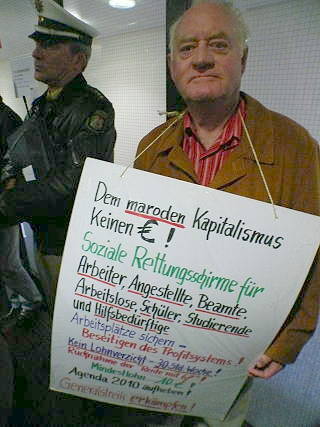 Dem maroden Kapitalismus
Keinen € !
Soziale Rettungsschirme für
Arbeiter, Angestellte, Beamte,
Arbeitslose, Schüler, Studierende
und Hilfsbedürftige
Arbeitsplätze sichern –
Beseitigen des Profitsystems !
Kein Lohnverzicht – 30 Std. Woche !
Rücknahme der Rente mit 67 !
Mindestlohn 10 € !
Agenda 2010 aufheben !
Generalstreik erkämpfen !